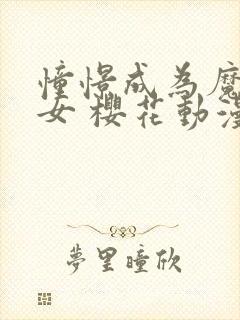 憧憬成為魔
女 櫻花動漫
夢里瞳欣